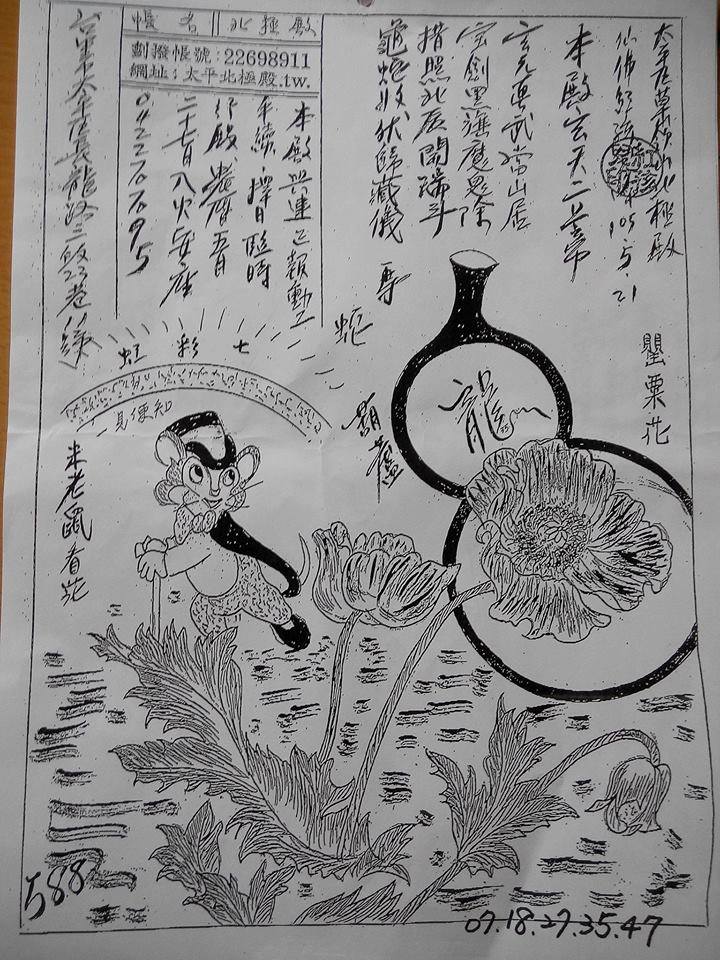 太平草湖北極殿
105.5.21
本殿玄天二上帝
玄元真武當山居
宝劍黑旗魔鬼除
指照北辰開瑞斗
龜蛇收伏歸藏儀
本殿興建已報動工
手續擇日臨時
行殿農曆五月
二十七日入火安座
0422707095
帳名 北極殿
劃撥帳號:22698911
網址:太平北極殿.tw.
台中市太平區長龍路三段23巷
七彩虹
一見便知
專
蛇
葫蘆
龍
罌粟花
米老鼠看花
588
07.18.27.35.47